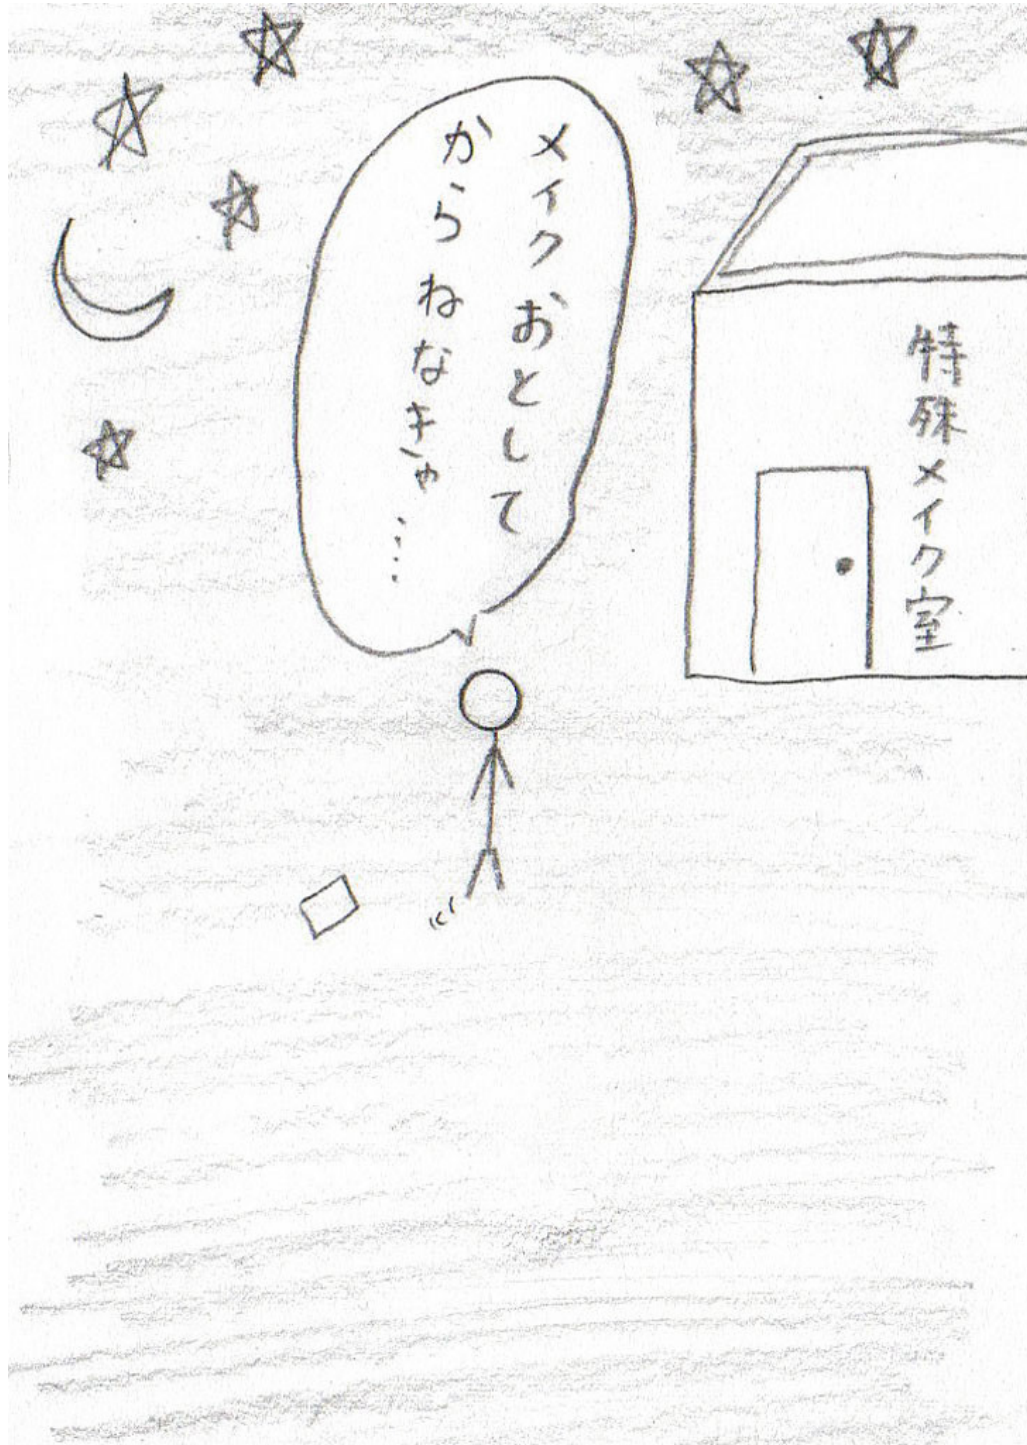 特殊メイク室
メイクおとして
からねなきゃ…